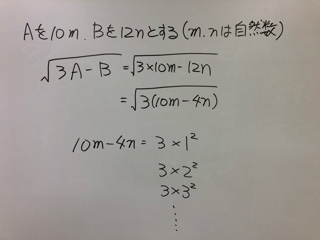 Aを10m.Bを12nとする(m.nは自然数)
√3A-B = √3×10m-12n
= √3(10m-4n)
10m-4n = 3×1²
3×2²
3×3²
⋮